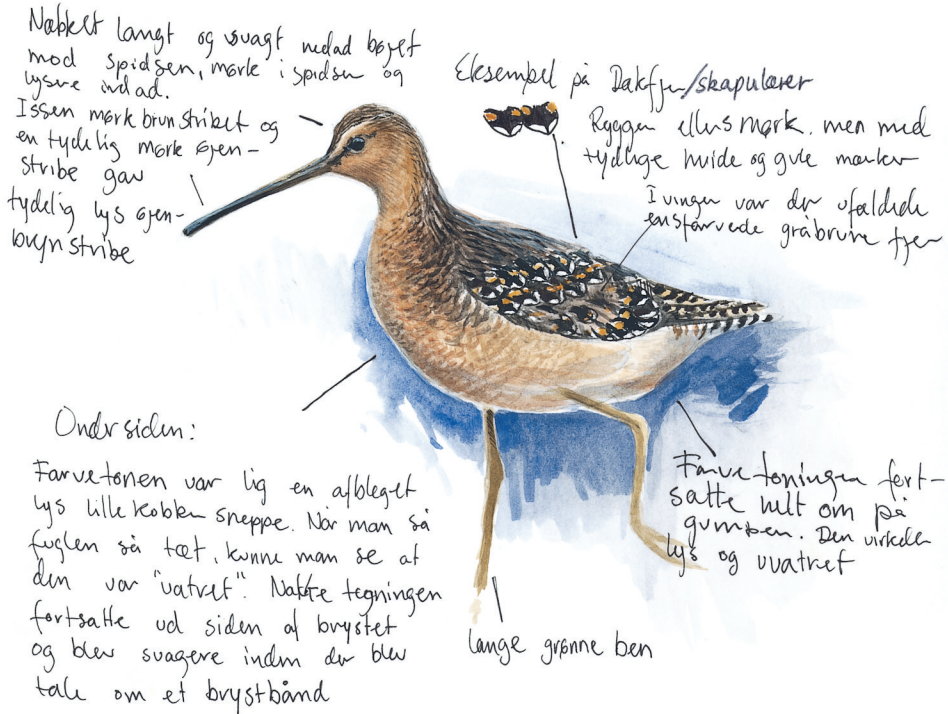 Næbbet langt og svagt nedad bøjet
mod spidsen, mørk i spidsen og
lysere indad.
Issen mørkbrun stribet og
en tydelig mørk øjen-
stribe gav
tydelig lys øjen-
brynstribe
Eksempel på Dækfjer/skapulærer
Ryggen ellers mørk, men med
tydelige hvide og gule mærker
I vingen var der ufældede
ensfarvede gråbrune fjer
Undersiden:
Farvetonen var lig en afbleget
lys lille kobbersneppe. Når man så
fuglen så tæt, kunne man se at
den var "vatret". Nakke tegningen
fortsatte ud siden af brystet
og blev svagere inden der blev
tale om et brystbånd
Farvetoningen fort-
satte helt om på
gumpen. Den virkede
lys og uvatret
lange grønne ben